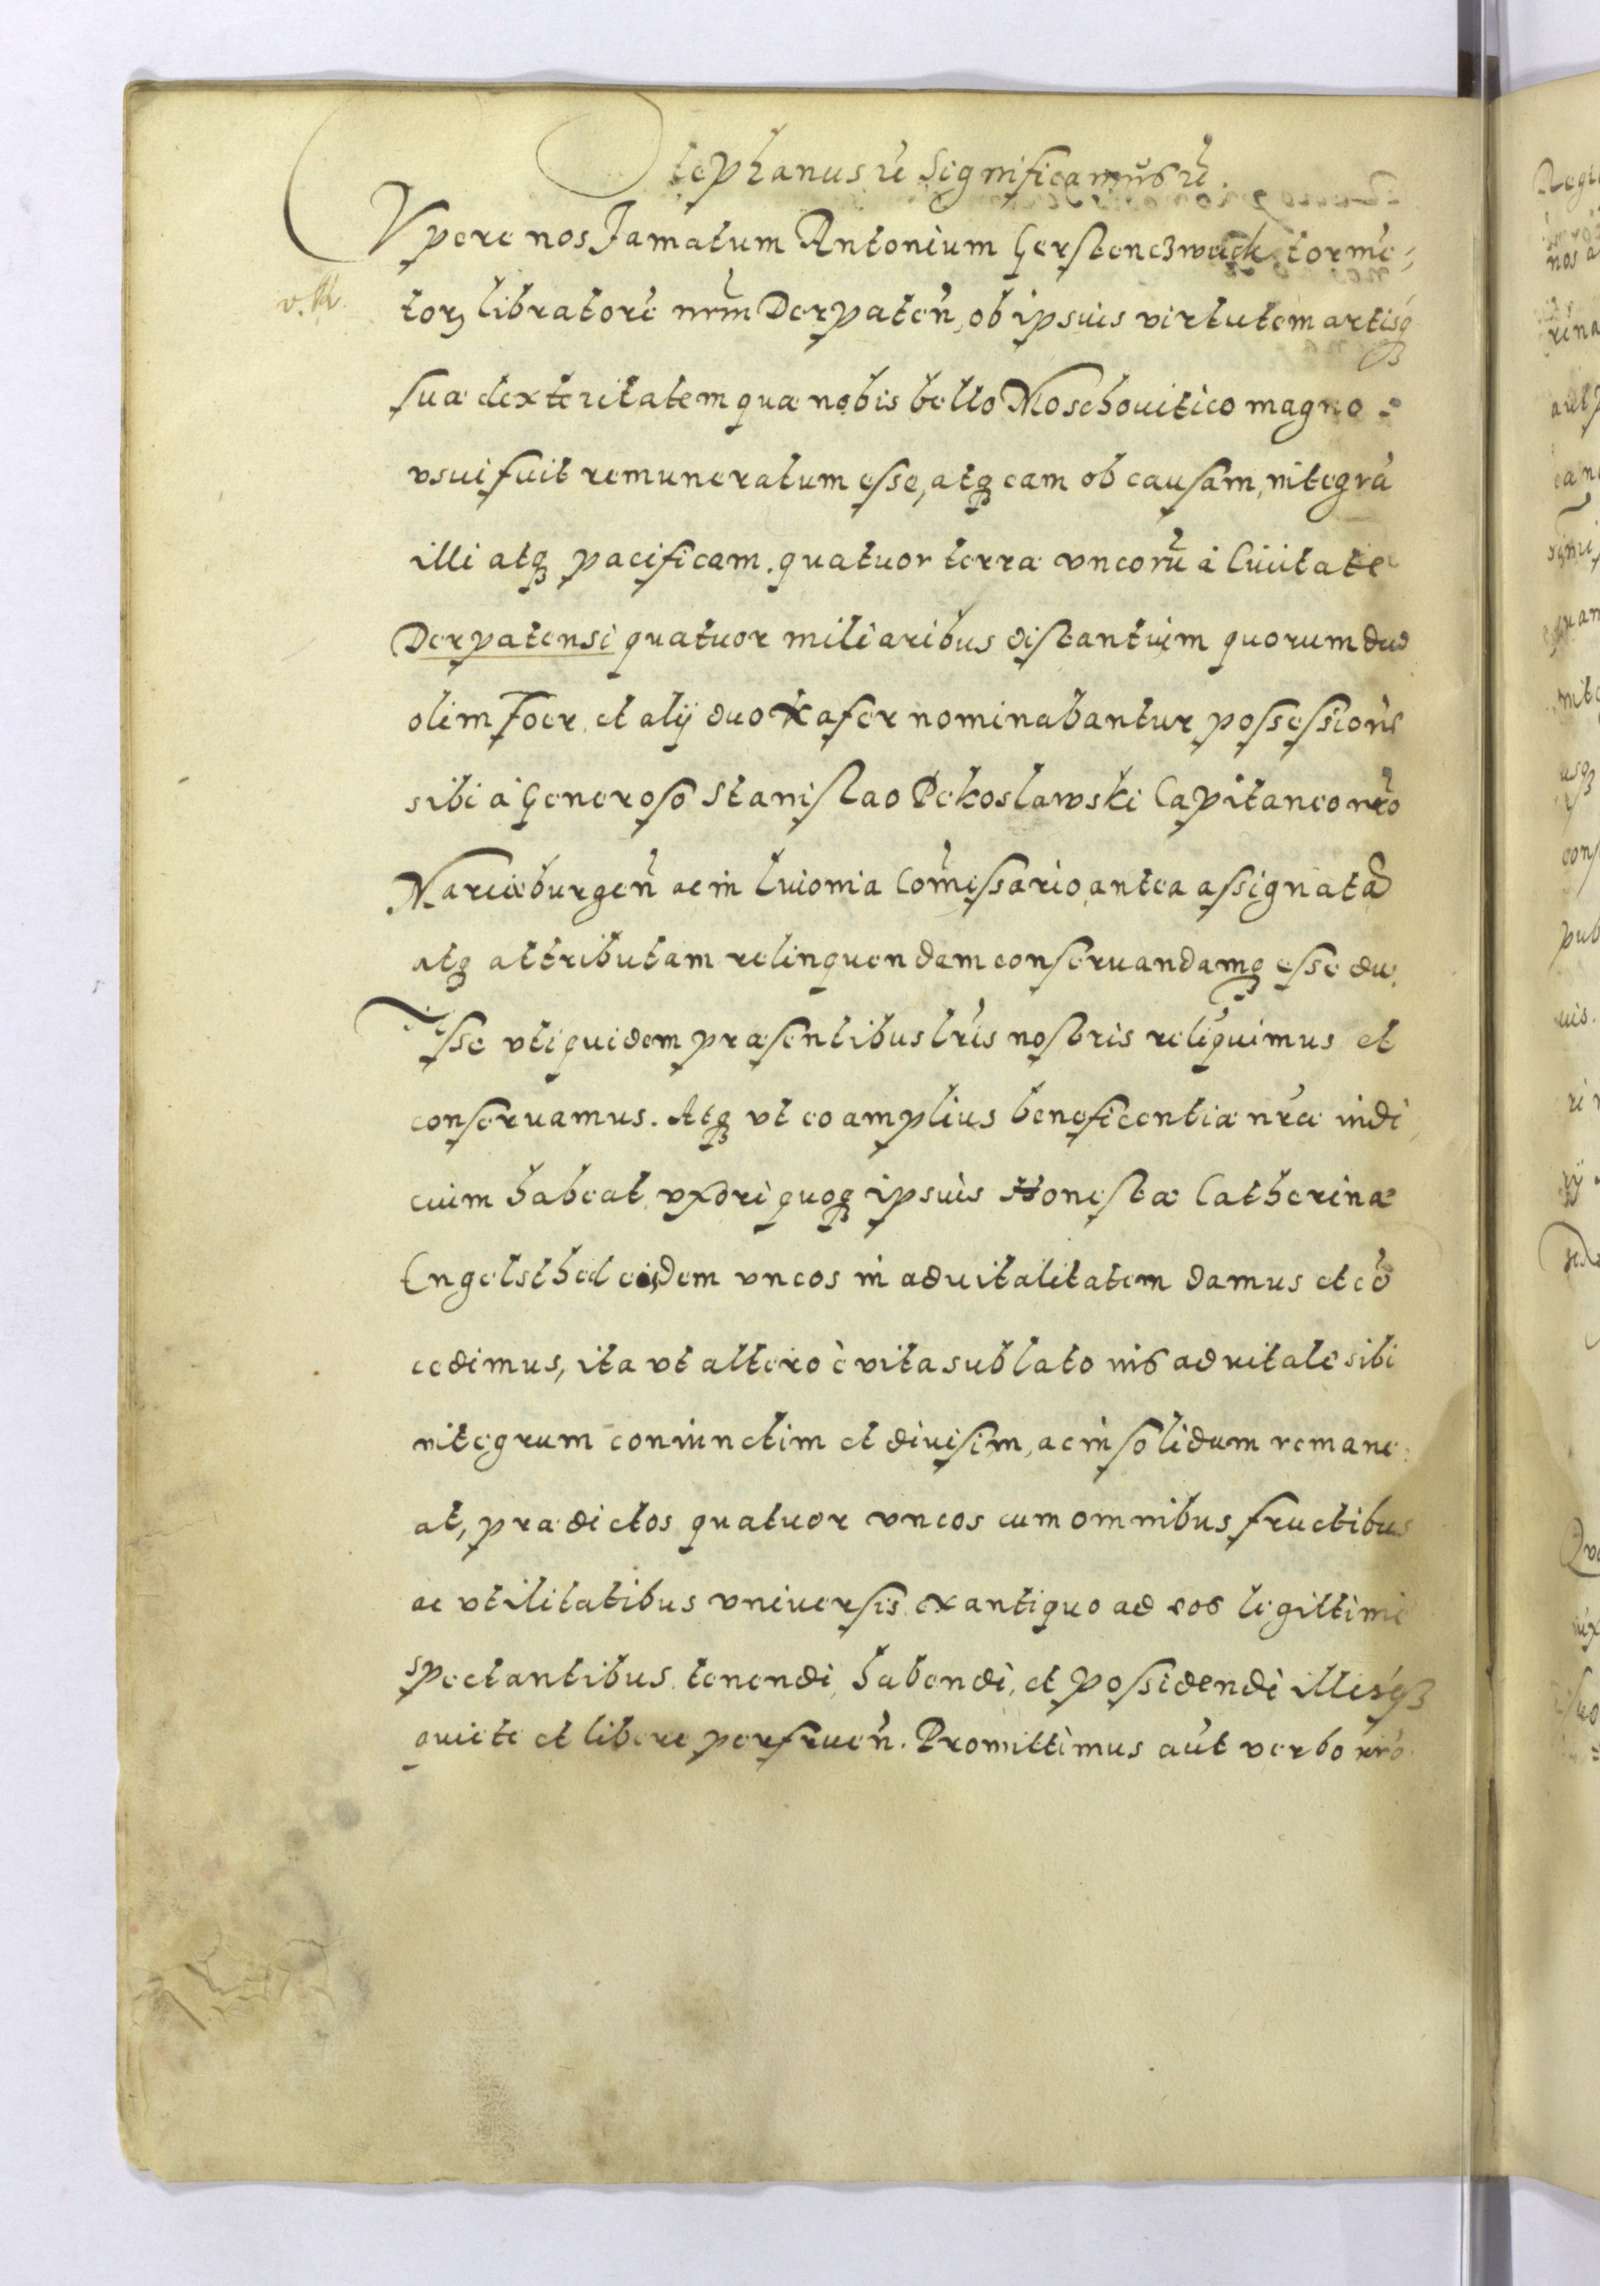 Stephanus rē Significamus rē.
Upere nos Famatum Antonium Gerstenczweick tormē:
torꝫ libratorē nrm̄ Derpateñ, ob ipsius virtutem artisqꝫ
suæ dexteritatem quæ nobis bello Moschouitico magno
vsui fuit remuneratum esse, atqꝫ eam ob causam, integrā
illi atqꝫ pacificam quatuor terræ vncorū à Ciuitate
Derpatensi quatuor miliaribus distantium quorum duo
olim Foer, et alij duo Kafer nominabantur possessionē
sibi à Generoso Stanislao Pekoslawski Capitaneo nrō
Marieburgeñ ac in Liuonia Com̄issario antea assignatā
atqꝫ attributam relinquendam conseruandamqꝫ esse du,
isse vti quidem præsentibus lr̄is nostris reliquimus et
conseruamus. Atqꝫ vt eo amplius beneficentiæ nr̄æ indi,
cium habeat vxori quoqꝫ ipsius Honestæ Catherinæ
Engelsthed eisdem vncos in aduitalitatem damus et cō
cedimus, ita vt altero è vita sublato ius aduitalē sibi
integrum coniunctim et diuisim, ac in solidum remane:
at, prædictos quatuor vncos cum omnibus fructibus
ac vtilitatibus vniuersis ex antiquo ad eos legittimè
spectantibus tenendi, habendi, et possidendi illisqꝫ
quiete et libere perfrueñ. Promittimus aūt verbo nrō